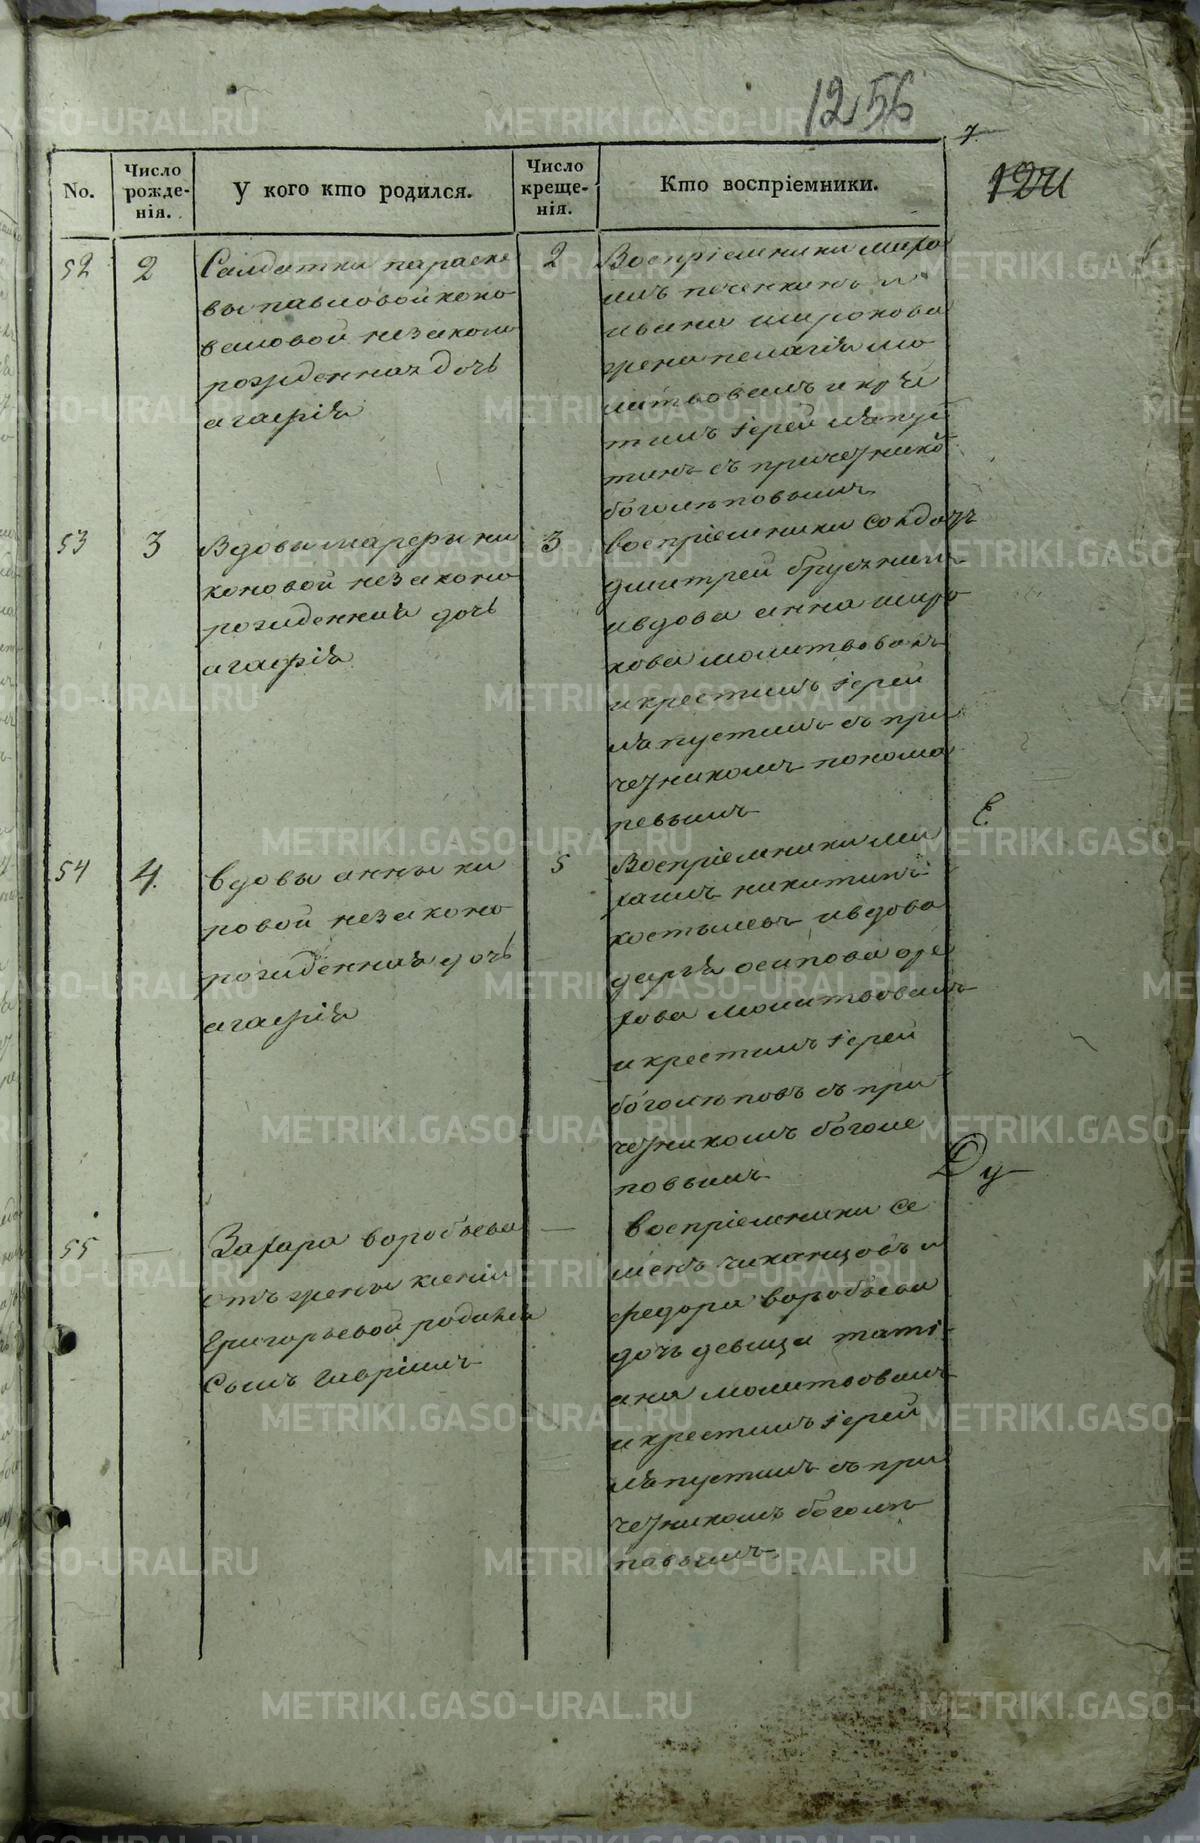 1256
7.
124
No.
Число рожде-нія.
У кого кто родился.
Число креще-нія.
Кто воспріемники.
52
2
Салдатки параске
вы павловой коно
валовой незаконо
рожденная дочь
агафія
2
Воспріемники миха
илъ печенкинъ и
ивана широкова
жена пелагія мо
литвовалъ и кре
тилъ іерей лапус
тинъ съ причетнико
боголеповымъ
53
3
Вдовы марфы ни
коновой незаконо
рожденная дочь
агафія
3
воспріемники солдатъ
дмитрей брус
и вдова анна широ
кова молитвовалъ
и крестилъ іерей
лапустинъ съ при
четникомъ понома
ревымъ
54
4.
вдовы анны ки
ровой незаконо
рожденная дочь
агафія
5
Воспріемники ми
хаилъ никитинъ
костылевъ и вдова
дарья осипова оре
хова молитвовалъ
и крестилъ іерей
боголеповъ съ при
четникомъ боголе
повымъ
55
—
Захара воробьева
отъ жены ксеніи
Григорьевой родился
сынъ гавріилъ
—
воспріемники се
менъ чиканцовъ и
федора воробьева
дочь девица таті
ана молитвовалъ
и крестилъ іерей
лапустинъ съ при
четникомъ боголе
повымъ
METRIKI.GASO-URAL.RU